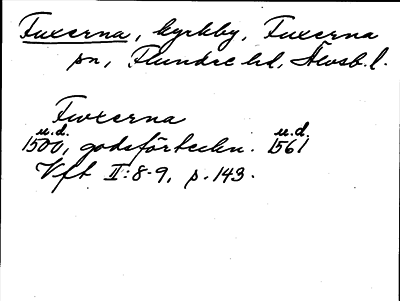 Fuxerna, kyrkby, Fuxerna
sn, Flundre hd, Älvsb. l.
Fwxerna
u.d. u.d.
1500, godsförteckn. 1561
Vft II:8-9, p. 143.